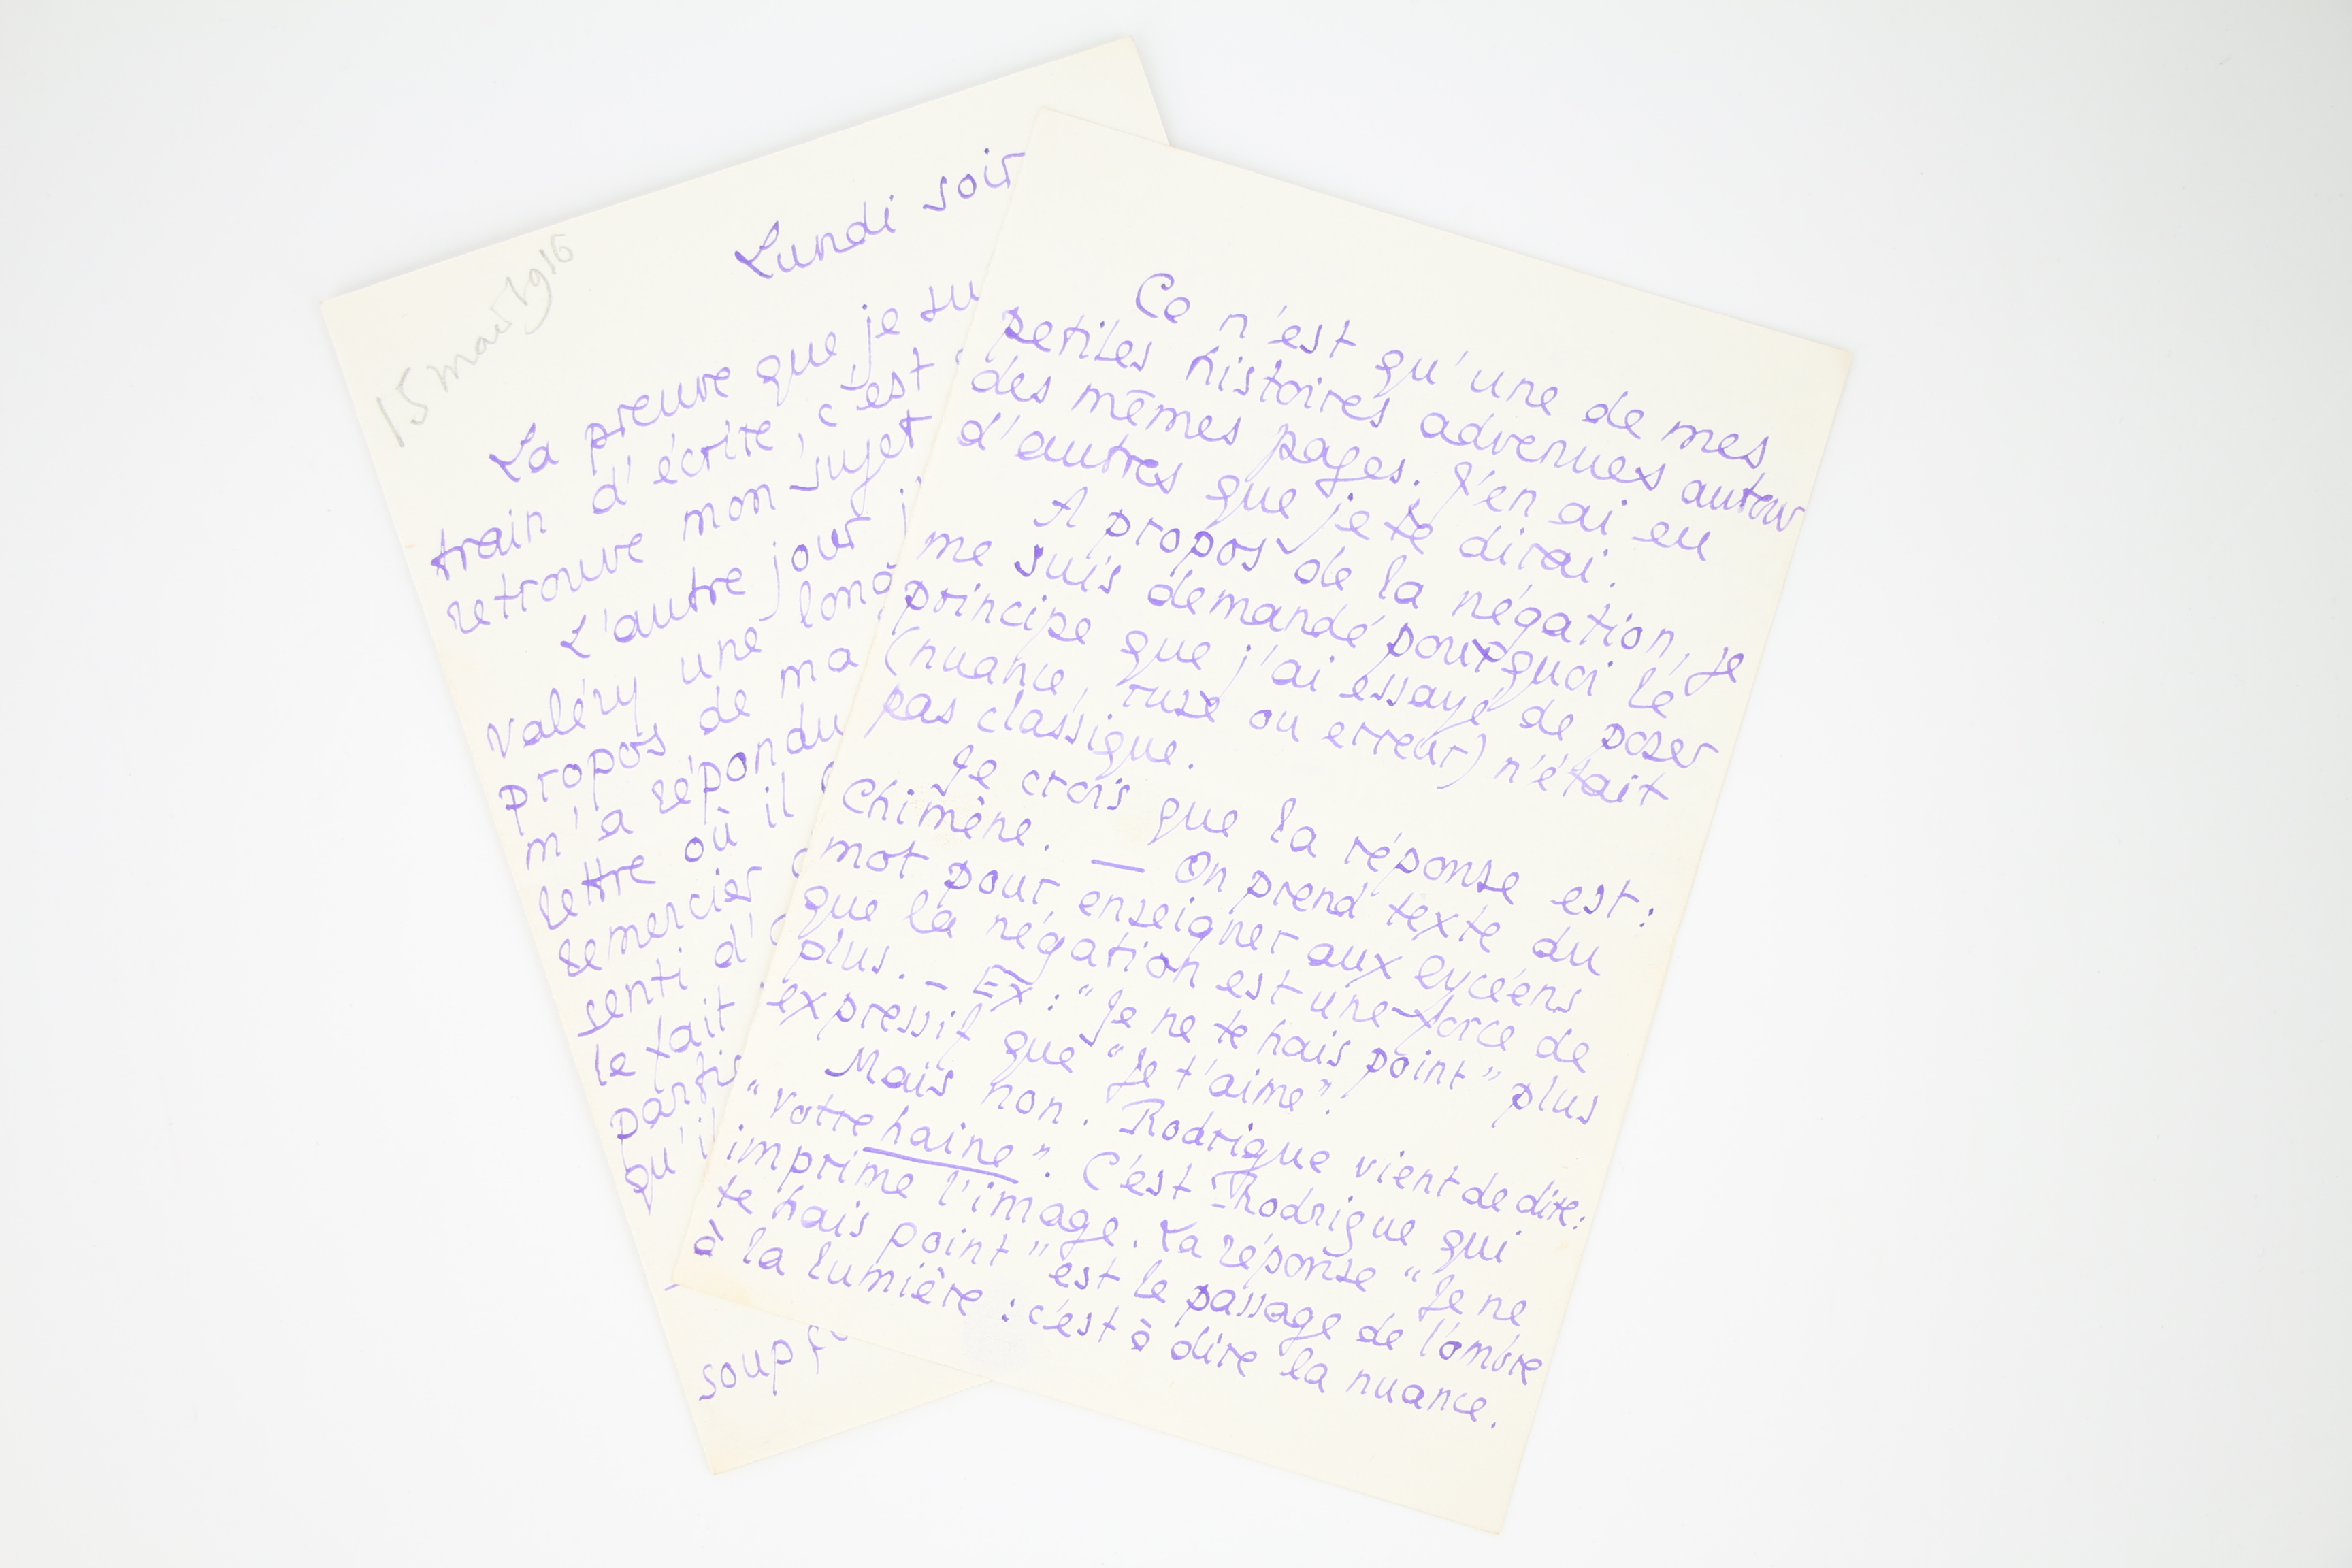 15 mai 1916
Lundi soir
La preuve que je su
train d'écrire, c'est
retrouve mon sujet
L'autre jour j
Valéry une long
propos de ma
m'a répondu
lettre où il
remercier
senti d'
le fait
parfis
qu'il
soup
Ce n'est qu'une de mes
petites histoires advenues autour
des mêmes pages. J'en ai eu
d'autres que je te dirai.
A propos de la négation, je
me suis demandé pourquoi le
principe que j'ai essayé de poser
(nuance, ruse ou erreur) n'était
pas classique.
Je crois que la réponse est :
Chimène. — On prend texte du
mot pour enseigner aux lycéens
que la négation est une force de
plus. — Ex : "Je ne te hais point" plus
expressif que "Je t'aime".
Mais non. Rodrigue vient de dire :
"Votre haine". C'est Rodrigue qui
imprime l'image. La réponse "Je ne
te hais point" est le passage de l'ombre
à la lumière : c'est à dire la nuance.